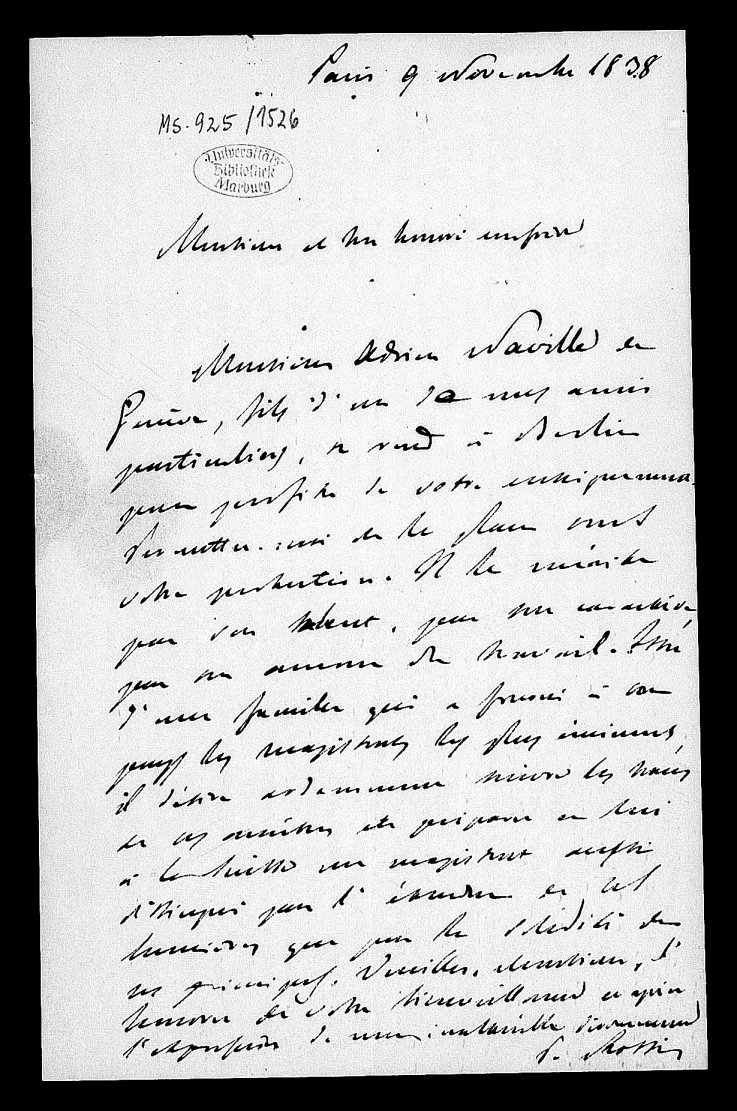 Paris 9 Novembre 1838
MS. 925 / 1526
Universitäts-
Bibliothek
Marburg
Monsieur et très honoré confrère
Monsieur Adrien Naville de
Genève, fils d'un de mes amis
particuliers, se rend à Berlin
pour profiter de votre enseignement.
Permettez-moi de le placer sous
votre protection. Il le mérite
par son talent, par son caractère,
par son amour du travail. Issu
d'une famille qui a fourni à son
pays les magistrats les plus éminens,
il désire ardemment suivre les traces
de ses ancêtres et préparer en lui
à la Suisse un magistrat aussi
distingué par l'étendue de ses
lumières que par la solidité de
ses principes. Veuillez, Monsieur, l'
honorer de votre bienveillance et agréer
l'expression de mon inaltérable dévouement
P. Rossi